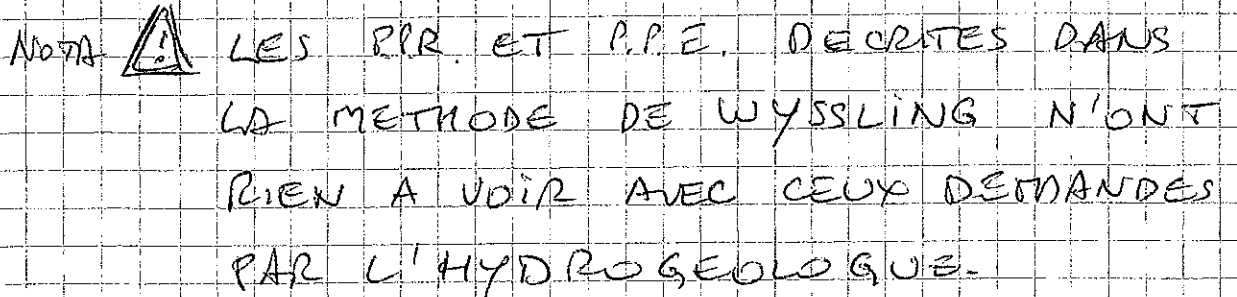 NOTA ⚠ LES P.P.R. ET P.P.E. DECRITES DANS
LA METHODE DE WYSSLING N'ONT
RIEN A VOIR AVEC CEUX DEMANDES
PAR L'HYDROGEOLOGUE.